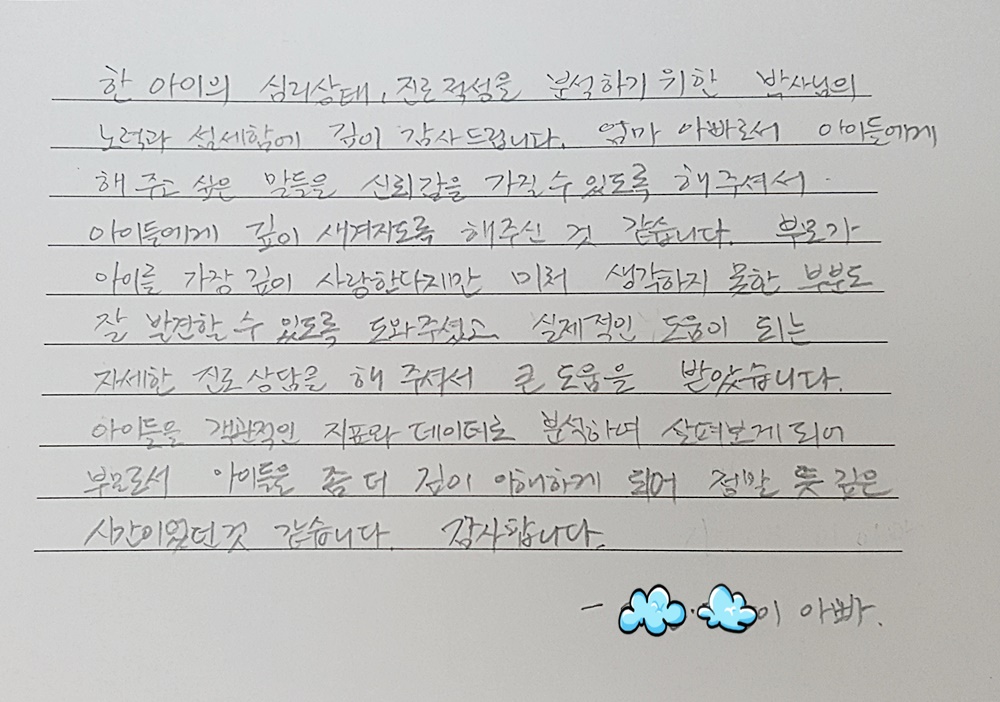 한 아이의 심리상태, 진로적성을 분석하기 위한 박사님의
노력과 섬세함에 깊이 감사드립니다. 엄마 아빠로서 아이들에게
해 주고 싶은 말들을 신뢰감을 가질 수 있도록 해주셔서
아이들에게 깊이 새겨지도록 해주신 것 같습니다. 부모가
아이를 가장 깊이 사랑한다지만 미처 생각하지 못한 부분도
잘 발견할 수 있도록 도와주셨고 실제적인 도움이 되는
자세한 진로상담을 해 주셔서 큰 도움을 받았습니다.
아이들을 객관적인 지표와 데이터로 분석하며 살펴보게 되어
부모로서 아이들을 좀 더 깊이 이해하게 되어 정말 뜻 깊은
시간이었던 것 같습니다. 감사합니다.
- 이 아빠.